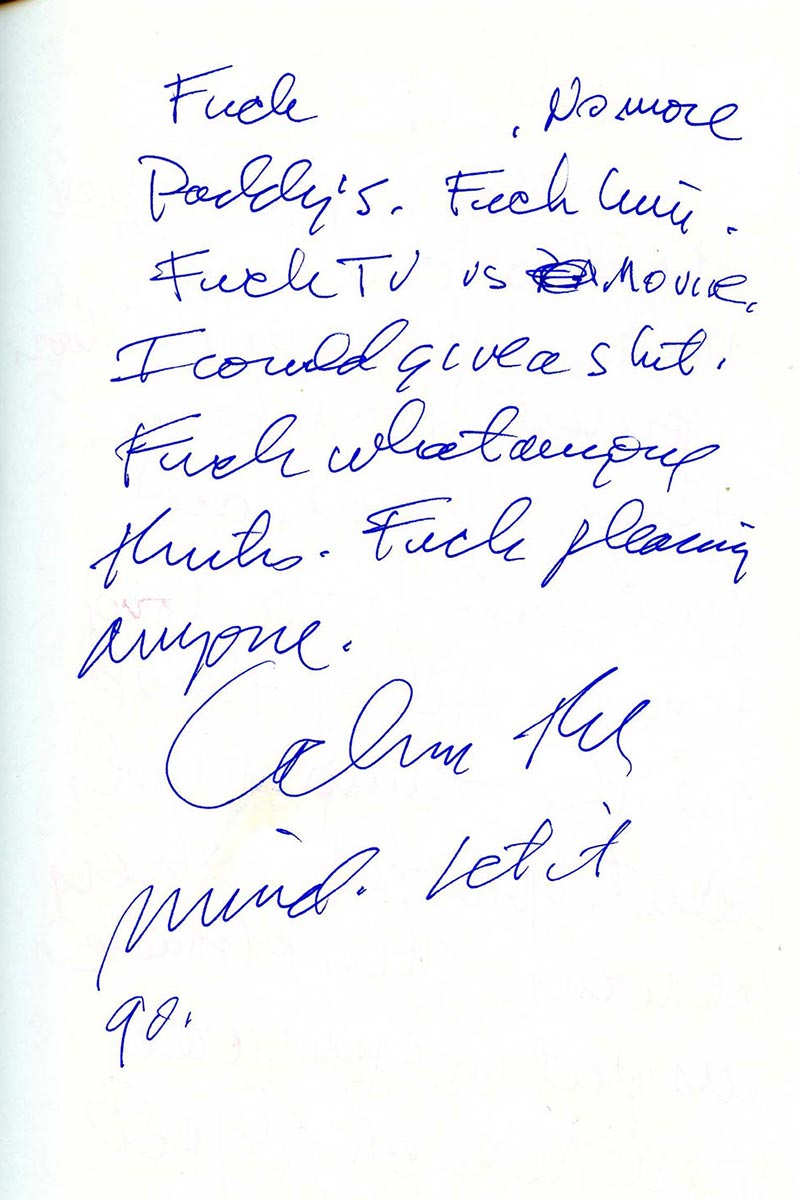 Fuck . No more
Paddy's. Fuck him.
Fuck TV vs Movie.
I could give a shit.
Fuck what anyone
thinks. Fuck pleasing
anyone.
Calm the
mind. Let it
go.